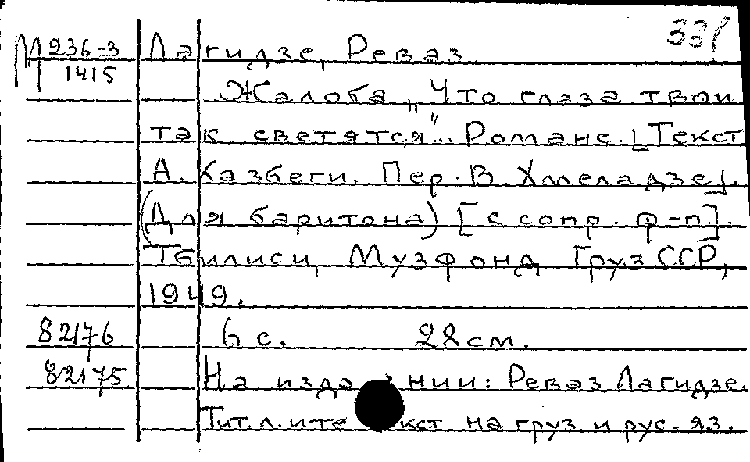 331
М 236-3 Лагидзе, Реваз
1415
Жалоба „Что глаза твои
так светятся"... Романс. [Текст
А. Казбеги. Пер. В. Хмеладзе].
(Для баритона) [с сопр. ф-п].
Тбилиси, Музфонд Груз ССР,
1949.
82176 6 с. 22 см.
82175 На изда нии: Реваз Лагидзе.
Тит. л. и те кст на груз. и рус. яз.